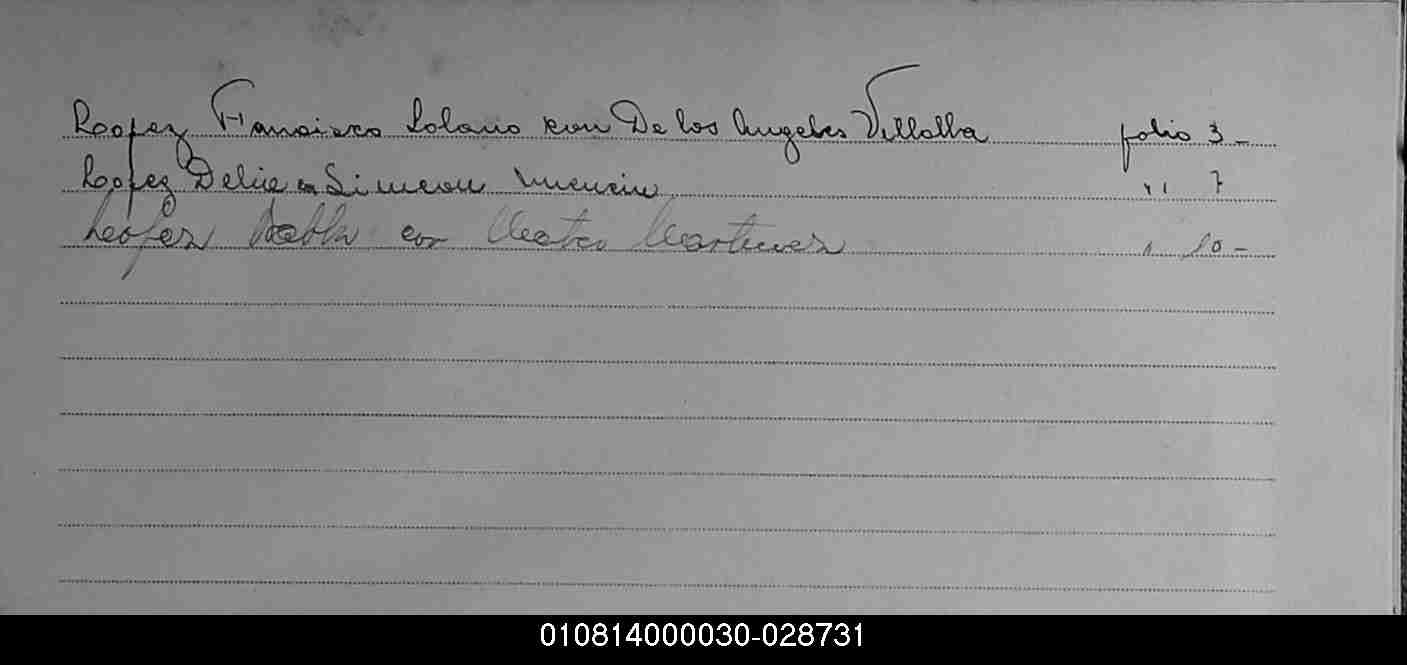 Lopez Francisco Solano con De los Angeles Villalba folio 3 -
Lopez Delia con Simeon " 7
Lopez con Martinez " 10 -
010814000030-028731